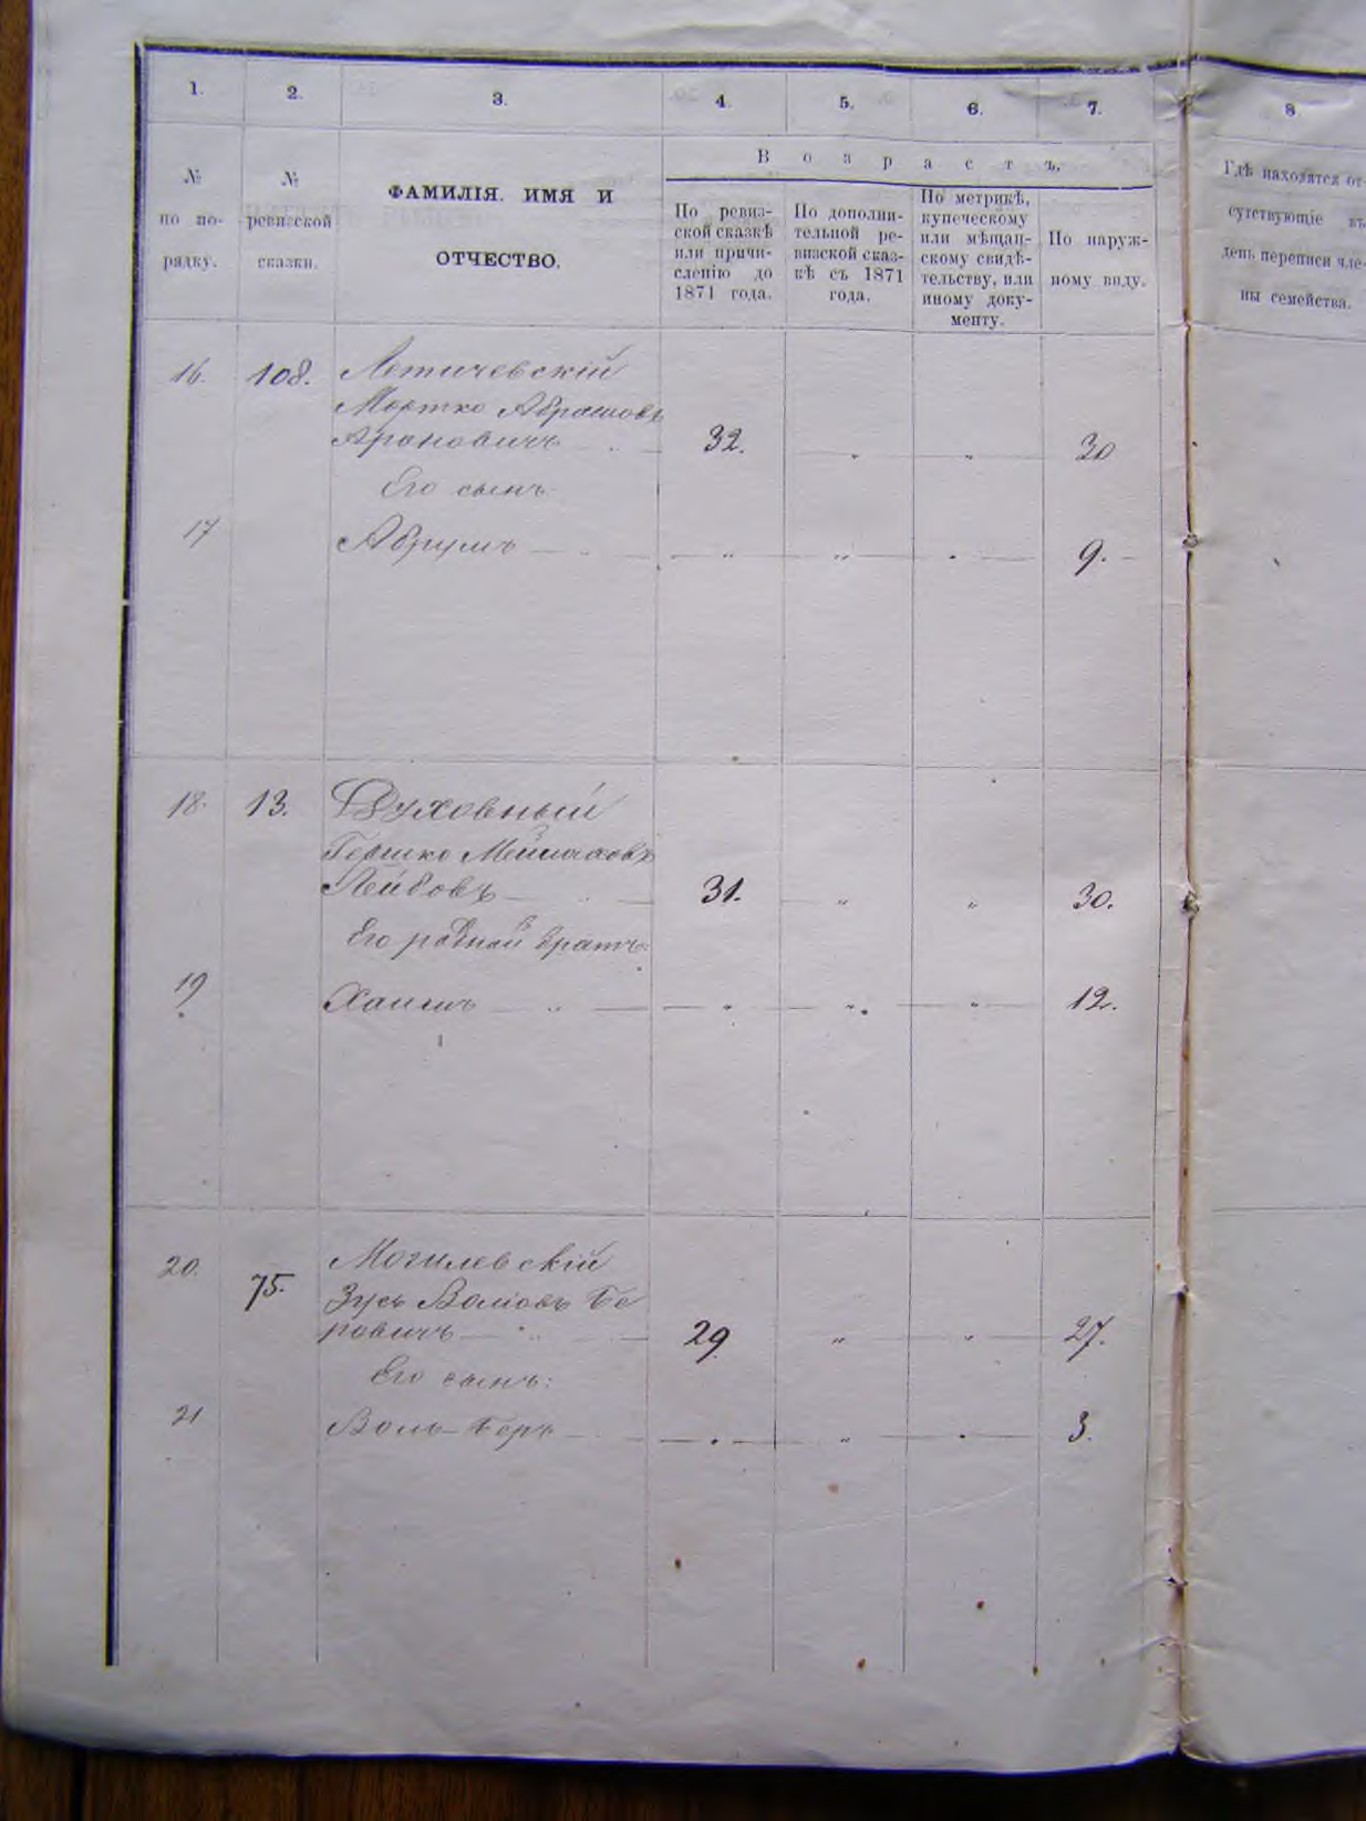 1. 2. 3. 4. 5. 6. 7. 8
Возрастъ.
№ по по-рядку.
№ ревизской сказки.
ФАМИЛІЯ. ИМЯ И
ОТЧЕСТВО.
По ревиз-
ской сказкѣ
или причи-
сленію до
1871 года.
По дополни-
тельной ре-
визской сказ-
кѣ съ 1871
года.
По метрикѣ,
купеческому
или мѣщан-
скому свидѣ-
тельству, или
иному доку-
менту.
По наруж-
ному виду.
Гдѣ находятся от-
сутствующіе въ
день переписи чле-
ны семейства.
16. 108. Летичевскій
Мортко Абрамовъ
Ароновичъ 32. " " 30
Его сынъ
17 Абрумъ " " " 9.
18. 13. Духовный
Гершко Мейлаховъ
Лейбовъ 31. " " 30.
Его родной братъ:
19 Хаимъ " " " 12.
20. 75. Могилевскій
Зусь Волковъ Бе
ровичъ 29 " " 27.
Его сынъ:
21 Воль-Беръ " " " 3.